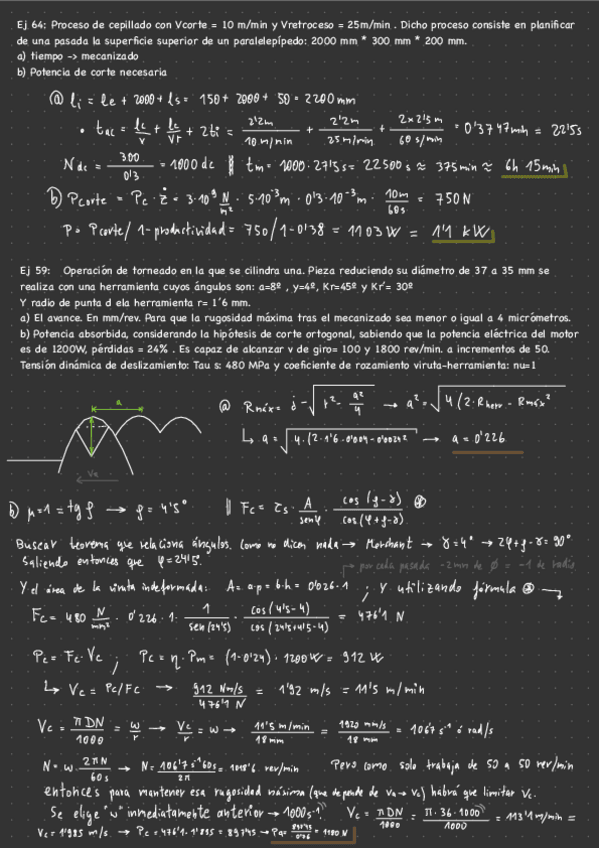 Ej 64: Proceso de cepillado con Vcorte = 10 m/min y Vretroceso = 25m/min . Dicho proceso consiste en planificar
de una pasada la superficie superior de un paralelepípedo: 2000 mm * 300 mm * 200 mm.
a) tiempo -> mecanizado
b) Potencia de corte necesaria
ⓐ li = le + 2000 + ls = 150 + 2000 + 50 = 2200 mm
• tac = lc/v + lc/vr + 2ti = 2'2m/10 m/min + 2'2m/25 m/min + 2x2'5 m/60 s/min = 0'3747 min = 22'5s
Ndc = 300/0'3 = 1000 dc || tm = 1000·27'5s = 22500 s ≈ 375min ≈ 6h 15min
b) Pcorte = Pc · ż = 3·10⁹ N/m² · 5·10⁻³m · 0'3·10⁻³m · 10m/60s = 750 N
P = Pcorte/ 1-productividad = 750/1-0'38 = 1103 W = 1'1 kW
Ej 59: Operación de torneado en la que se cilindra una. Pieza reduciendo su diámetro de 37 a 35 mm se
realiza con una herramienta cuyos ángulos son: a=8º , y=4º, Kr=45º y Kr´= 30º
Y radio de punta d ela herramienta r= 1´6 mm.
a) El avance. En mm/rev. Para que la rugosidad máxima tras el mecanizado sea menor o igual a 4 micrómetros.
b) Potencia absorbida, considerando la hipótesis de corte ortogonal, sabiendo que la potencia eléctrica del motor
es de 1200W, pérdidas = 24% . Es capaz de alcanzar v de giro= 100 y 1800 rev/min. a incrementos de 50.
Tensión dinámica de deslizamiento: Tau s: 480 MPa y coeficiente de rozamiento viruta-herramienta: nu=1
a
ⓐ Rmáx = √(r² - a²/4) → a² = √(4(2·Rherr - Rmáx²
↳ a = √(4·(2·1'6·0'004-0'004² → a = 0'226
Vc
b) μ=1 = tg ρ → ρ = 4'5° || Fc = τs · A/senφ · cos(ρ-γ)/cos(φ+ρ-γ) ⊛
Buscar teorema que relaciona ángulos. Como no dicen nada → Merchant → γ=4° → 2φ+ρ-γ=90°
Saliendo entonces que φ=24'5°.
por cada pasada -2mm de Ø = -1 de radio
Y el área de la viruta indeformada: A = a·p = b·h = 0'026·1 ; Y utilizando fórmula ⊛
Fc = 480 N/mm² · 0'226·1· 1/sen(24'5) · cos(4'5-4)/cos(24'5+4'5-4) = 476'1 N
Pc = Fc·Vc ; Pc = η·Pm = (1-0'24)·1200W = 912 W
↳ Vc = Pc/Fc → 912 Nm/s / 476'1 N = 1'92 m/s = 11'5 m/min
Vc = πDN/1000 = w/r → Vc/r = w → 11'5 m/min / 18mm = 1920 mm/s / 18 mm = 106'7 s⁻¹ ó rad/s
N = w · 2πN/60s → N = 106'7 s⁻¹60s/2π = 1018'6 rev/min. Pero como solo trabaja de 50 a 50 rev/min
entonces para mantener esa rugosidad máxima (que depende de Va → Vc) habrá que limitar Vc.
Se elige "w" inmediatamente anterior → 1000s⁻¹. Vc = πDN/1000 = π·36·1000/1000 = 113'1 m/min =
Vc = 1'885 m/s → Pc = 476'1·1'885 = 897'45 → Pa = 897'45/0'76 = 1180 N